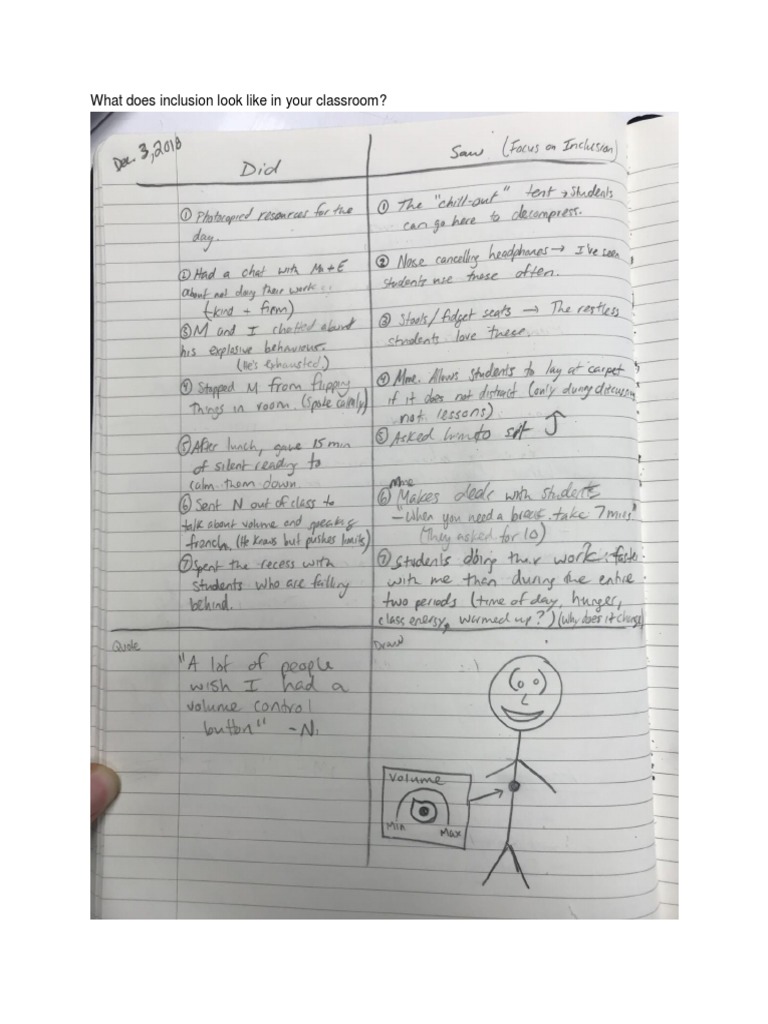 What does inclusion look like in your classroom?
Dec. 3, 2018
Did
① Photocopied resources for the
day.
② Had a chat with M + E
about not doing their work...
(kind + firm)
③ M and I chatted about
his explosive behaviour.
(He's exhausted)
④ Stopped M from flipping
things in room. (Spoke calmly)
⑤ After lunch, gave 15 min
of silent reading to
calm them down.
⑥ Sent N out of class to
talk about volume and speaking
french. (He knows but pushes limits)
⑦ Spent the recess with
students who are falling
behind.
Saw (Focus on Inclusion)
① The "chill-out" tent → Students
can go here to decompress.
② Nose cancelling headphones → I've seen
students use these often.
③ Stools/fidget seats → The restless
students love these.
④ Mme. Allows students to lay at carpet
if it does not distract (only during discussion
not lessons)
⑤ Asked to sit
⑥ Mme Makes deals with students
- "When you need a break, take 7 mins"
(They asked for 10)
⑦ Students doing their work faster
with me than during the entire
two periods (time of day, hunger,
class energy, warmed up?) (Why does it change)
Quote
"A lot of people
wish I had a
volume control
button" - N.
Draw
Volume
Min
Max